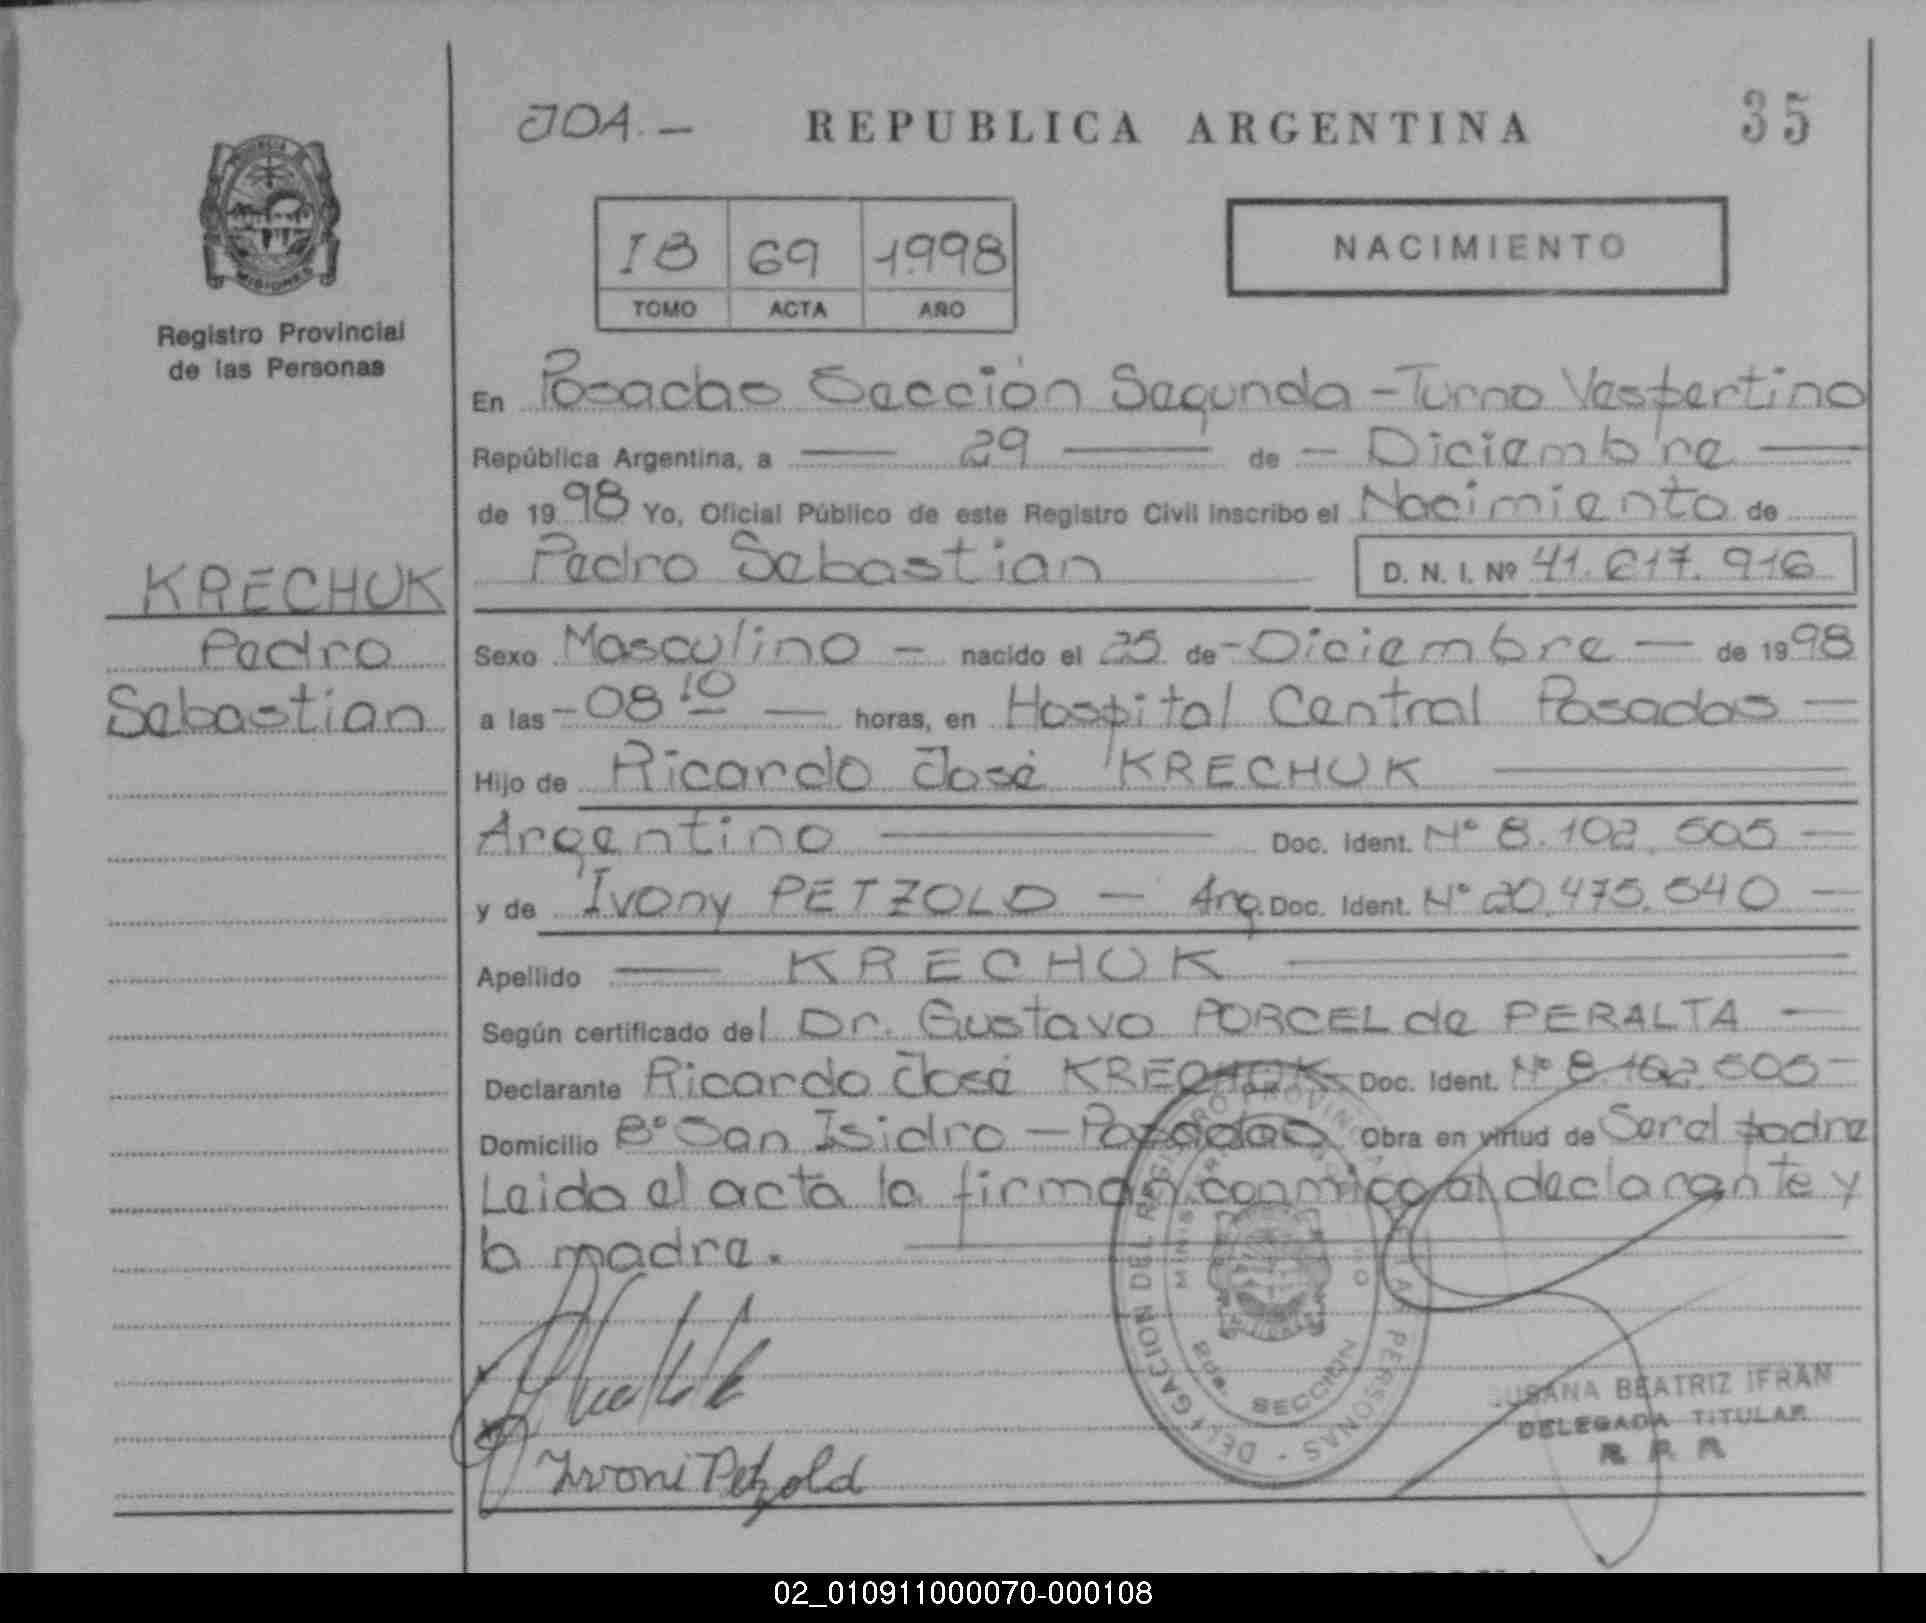 JOA.- REPUBLICA ARGENTINA 35
MISIONES
Registro Provincial
de las Personas
I B 69 1998
TOMO ACTA AÑO
NACIMIENTO
En Posadas Sección Segunda - Turno Vespertino
República Argentina, a — 29 — de - Diciembre —
de 1998 Yo, Oficial Público de este Registro Civil inscribo el Nacimiento de
Pedro Sebastian D. N. I. Nº 41.617.916
KRECHUK
Pedro
Sebastian
Sexo Masculino - nacido el 25 de - Diciembre — de 1998
a las - 08 10 — horas, en Hospital Central Posadas —
Hijo de Ricardo José KRECHUK
Argentino — Doc. Ident. Nº 8.102.505 —
y de Ivony PETZOLD — Arg. Doc. Ident. Nº 20.475.540 —
Apellido — KRECHUK —
Según certificado del Dr. Gustavo PORCEL de PERALTA —
Declarante Ricardo José KRECHUK Doc. Ident. Nº 8.102.505 -
Domicilio Bº San Isidro - Posadas Obra en virtud de Ser el padre
Leida el acta la firman conmigo el declarante y
la madre.
DELEGACION DEL REGISTRO PROVINCIAL PERSONAS
SECCION
SUSANA BEATRIZ IFRAN
DELEGADA TITULAR
R P R
Ivoni Petzold
02_010911000070-000108